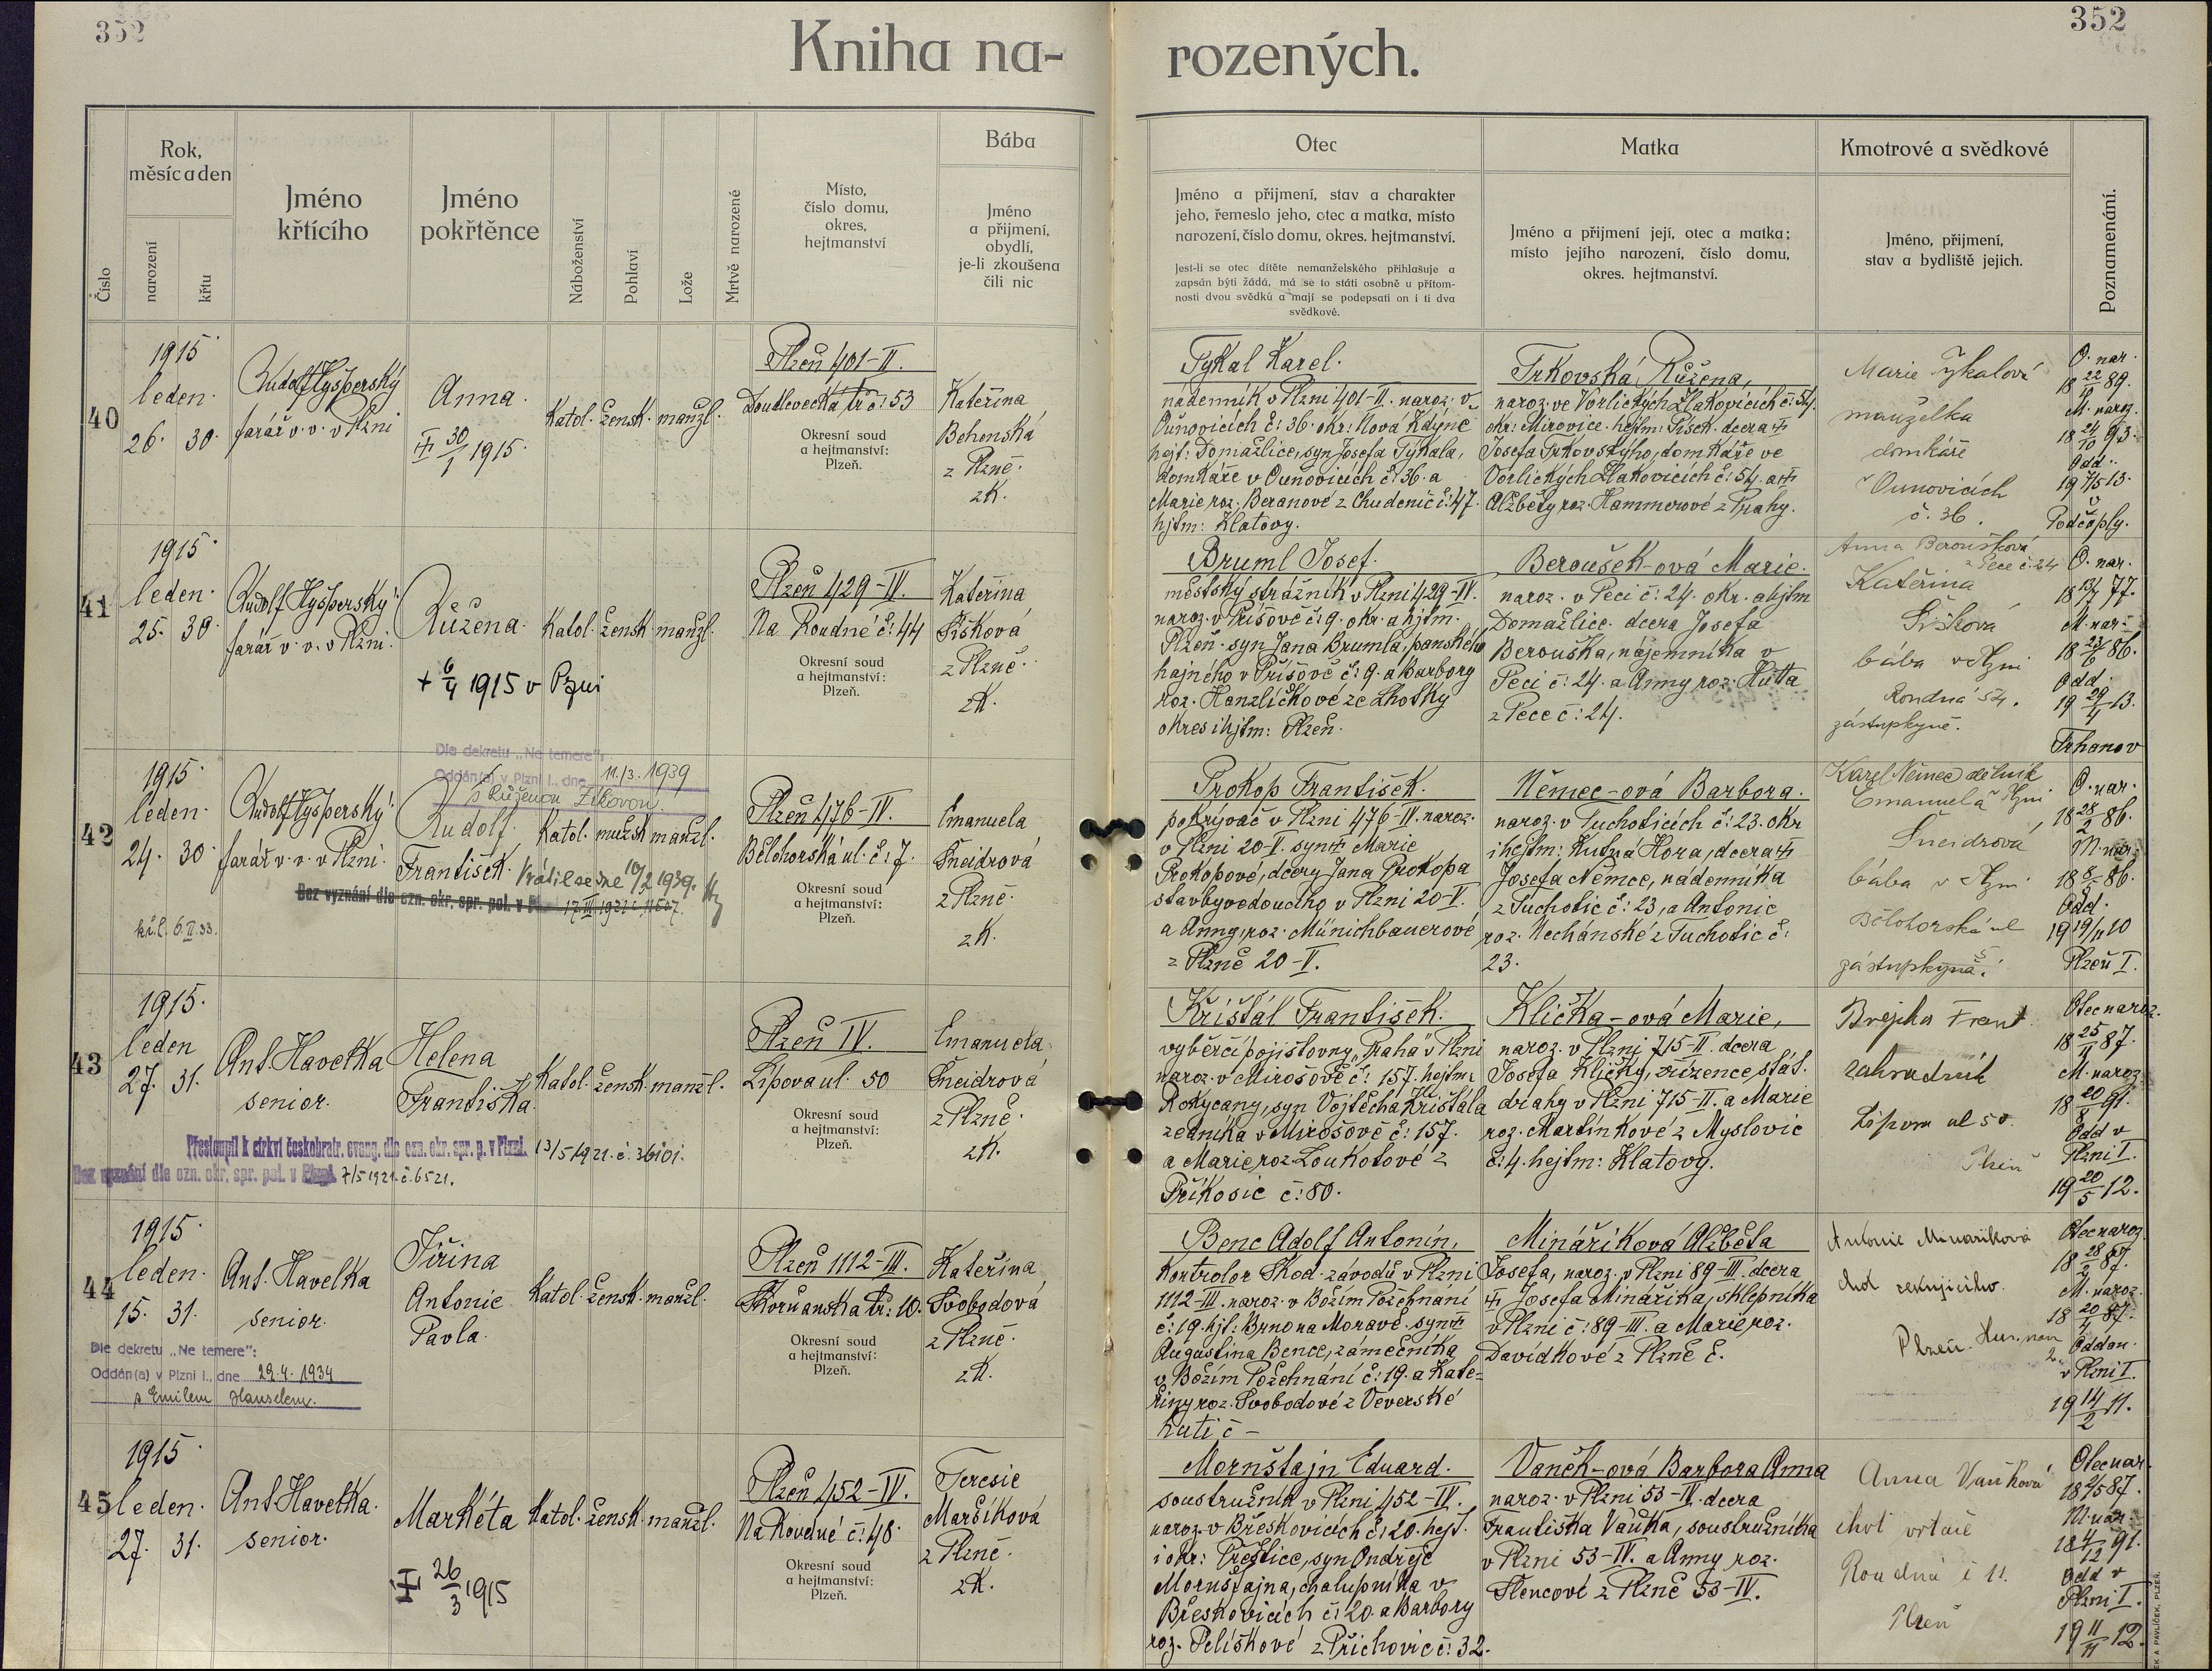 352
352
Kniha na-
rozených.
Číslo
Rok,
měsíc a den
narození
křtu
Jméno
křtícího
Jméno
pokřtěnce
Náboženství
Pohlaví
Lože
Mrtvě narozené
Místo,
číslo domu,
okres,
hejtmanství
Bába
Jméno
a přijmení,
obydlí,
je-li zkoušena
čili nic
Otec
Jméno a přijmení, stav a charakter
jeho, řemeslo jeho, otec a matka, místo
narození, číslo domu, okres. hejtmanství.
Jest-li se otec dítěte nemanželského přihlašuje a
zapsán býti žádá, má se to státi osobně u přítom-
nosti dvou svědků a mají se podepsati on i ti dva
svědkové.
Matka
Jméno a přijmení její, otec a matka;
místo jejího narození, číslo domu,
okres. hejtmanství.
Kmotrové a svědkové
Jméno, přijmení,
stav a bydliště jejich.
Poznamenání.
40
1915
leden.
26. 30.
Rudolf Hysperský
farář v. v. v Plzni
Anna.
30/1 1915.
Katol. žensk. manžl.
Plzeň 401-II.
Doudlevecká tř. č: 53
Okresní soud
a hejtmanství:
Plzeň.
Kateřina
Behenská
z Plzně.
zk.
Tykal Karel.
nádenník v Plzni 401-II. naroz. v
Ounovicích č: 36. okr: Nová Kdýně
hejt: Domažlice, syn Josefa Tykala,
domkáře v Ounovicích č: 36. a
Marie roz. Beranové z Chudenic č: 47.
hjtm: Klatovy.
Trkovská Růžena,
naroz. ve Vorlických Zlakovicích č: 54.
okr: Mirovice. hejtm: Písek. dcera
Josefa Trkovského, domkáře ve
Vorlických Zlakovicích č: 54. a
Alžběty roz. Hammerové z Prahy.
Marie Tykalová
manželka
domkáře
v Ounovicích
č. 36.
O. nar.
18 22/11 89.
M. naroz.
18 24/10 93.
Odd.
19 7/5 13.
v
Podčáply.
41
1915
leden.
25. 30.
Rudolf Hysperský
farář v. v. v Plzni.
Růžena.
+ 6/4 1915 v Plzni
Katol. žensk. manžl.
Plzeň 429-IV.
Na Roudné č: 44
Okresní soud
a hejtmanství:
Plzeň.
Kateřina
Šišková
z Plzně.
zk.
Bruml Josef.
městský strážník v Plzni 429-IV.
naroz. v Příšově č: 9. okr. a hjtm.
Plzeň. syn Jana Brumla, panského
hajného v Příšově č: 9. a Barbory
roz. Hanzlíčkové ze Lhotky
okres i hjtm: Plzeň.
Beroušek-ová Marie.
naroz. v Peci č: 24. okr. a hjtm
Domažlice. dcera Josefa
Berouška, nájemníka v
Peci č: 24. a Anny roz. Huta
z Pece č: 24.
Anna Beroušková
z Pece č. 24
Kateřina
Šišková
bába v Plzni
Roudná 54.
zástupkyně.
O. nar.
18 13/7 77.
M. nar.
18 23/6 86.
Odd.
19 29/4 13.
Trhanov
42
1915
leden.
24. 30.
kř. l. 6.II.33.
Rudolf Hysperský
farář v. v. v Plzni.
Dle dekretu „Ne temere":
Oddán(a) v Plzni I., dne 11./3. 1939
s Růženou Zikovou
Rudolf
František.
Vrátil se dne 10/2 1939.
Bez vyznání dle ozn. okr. spr. pol. v
Katol. mužsk. manžl.
Plzeň 476-IV.
Bělohorská ul. č: 7.
Okresní soud
a hejtmanství:
Plzeň.
Emanuela
Šneidrová
z Plzně.
zk.
Prokop František.
pokrývač v Plzni 476-IV. naroz.
v Plzni 20-V. syn Marie
Prokopové, dcery Jana Prokopa
stavbyvedoucího v Plzni 20-V.
a Anny, roz. Münichbauerové
z Plzně 20-V.
Němec-ová Barbora.
naroz. v Suchoticích č: 23. okr
i hejtm: Kutná Hora, dcera
Josefa Němce, nádenníka
z Suchotic č: 23, a Antonie
roz. Nechánské z Suchotic č:
23.
Karel Němec dělník
Emanuela
Šneidrová
bába v Plzni
Bělohorská ul
zástupkyně.
O. nar.
18 28/2 86.
M. nar.
18 8/5 86.
Odd.
19 19/11 10
Plzeň I.
43
1915.
leden
27. 31.
Ant. Havelka
senior.
Helena
Františka.
Katol. žensk. manžl.
Přestoupil k církvi českobratr. evang. dle ozn. okr. spr. p. v Plzni. 13/5 1921. č. 36101.
Bez vyznání dle ozn. okr. spr. pol. v Plzni. 7/5 1921. č. 6521.
Plzeň IV.
Lípová ul. 50
Okresní soud
a hejtmanství:
Plzeň.
Emanuela
Šneidrová
z Plzně.
zk.
Křišťál František.
výběrčí pojišťovny „Praha" v Plzni
naroz. v Mirošově č: 157. hejtm:
Rokycany, syn Vojtěcha Křišťála
zedníka v Mirošově č: 157.
a Marie roz. Loukotové z
Příkosic č: 80.
Klička-ová Marie,
naroz. v Plzni 715-II. dcera
Josefa Kličky, zřízence stát.
dráhy v Plzni 715-II. a Marie
roz. Martínkové z Myslovic
č: 4. hejtm: Klatovy.
Brejcha Frant.
zahradník
Lípová ul 50.
Plzeň
Otec naroz.
18 25/11 87.
M. naroz.
18 20/8 91.
Odd v
Plzni I.
19 20/5 12.
44
1915.
leden.
15. 31.
Ant. Havelka
senior.
Jiřina
Antonie
Pavla.
Dle dekretu „Ne temere":
Oddán(a) v Plzni I., dne 29.4. 1934
s Emilem Hanselem.
Katol. žensk. manžl.
Plzeň 1112-III.
Skvrňanská tř: 10.
Okresní soud
a hejtmanství:
Plzeň.
Kateřina
Svobodová
z Plzně.
zk.
Benc Adolf Antonín,
kontrolor Škod. závodů v Plzni
1112-III. naroz. v Božím Požehnání
č: 19. hjt: Brno na Moravě. syn
Augustina Bence, zámečníka
v Božím Požehnání č: 19. a Kate-
řiny roz. Svobodové z Veverské
huti č -
Mináříková Alžběta
Josefa, naroz. v Plzni 89-III. dcera
Josefa Mináříka, sklepníka
v Plzni č: 89-III. a Marie roz.
Davídkové z Plzně č.
Antonie Minaříková
choť
Plzeň.
Otec naroz.
18 28/2 87.
M. naroz.
18 20/4 87.
Oddan.
v Plzni I.
19 14/2 11.
45
1915.
leden.
27. 31.
Ant. Havelka.
senior.
Markéta
26/3 1915
Katol. žensk. manžl.
Plzeň 452-IV.
Na Roudné č: 48.
Okresní soud
a hejtmanství:
Plzeň.
Teresie
Maršíková
z Plzně.
zk.
Mornštajn Eduard.
soustružník v Plzni 452-IV.
naroz. v Břeskovicích č: 20. hejt.
i okr: Přeštice, syn Ondřeje
Mornštajna, chalupníka v
Břeskovicích č: 20. a Barbory
roz. Pelíškové z Příchovic č: 32.
Vaněk-ová Barbora Anna
naroz. v Plzni 53-IV. dcera
Františka Vaňka, soustružníka
v Plzni 53-IV. a Anny roz.
Šlencové z Plzně 53-IV.
Anna Vaňková
choť vrtače
Roudná č 11.
Plzeň
Otec nar.
18 2/5 87.
M. nar.
18 4/12 91.
Odd v
Plzni I.
19 11/11 12.